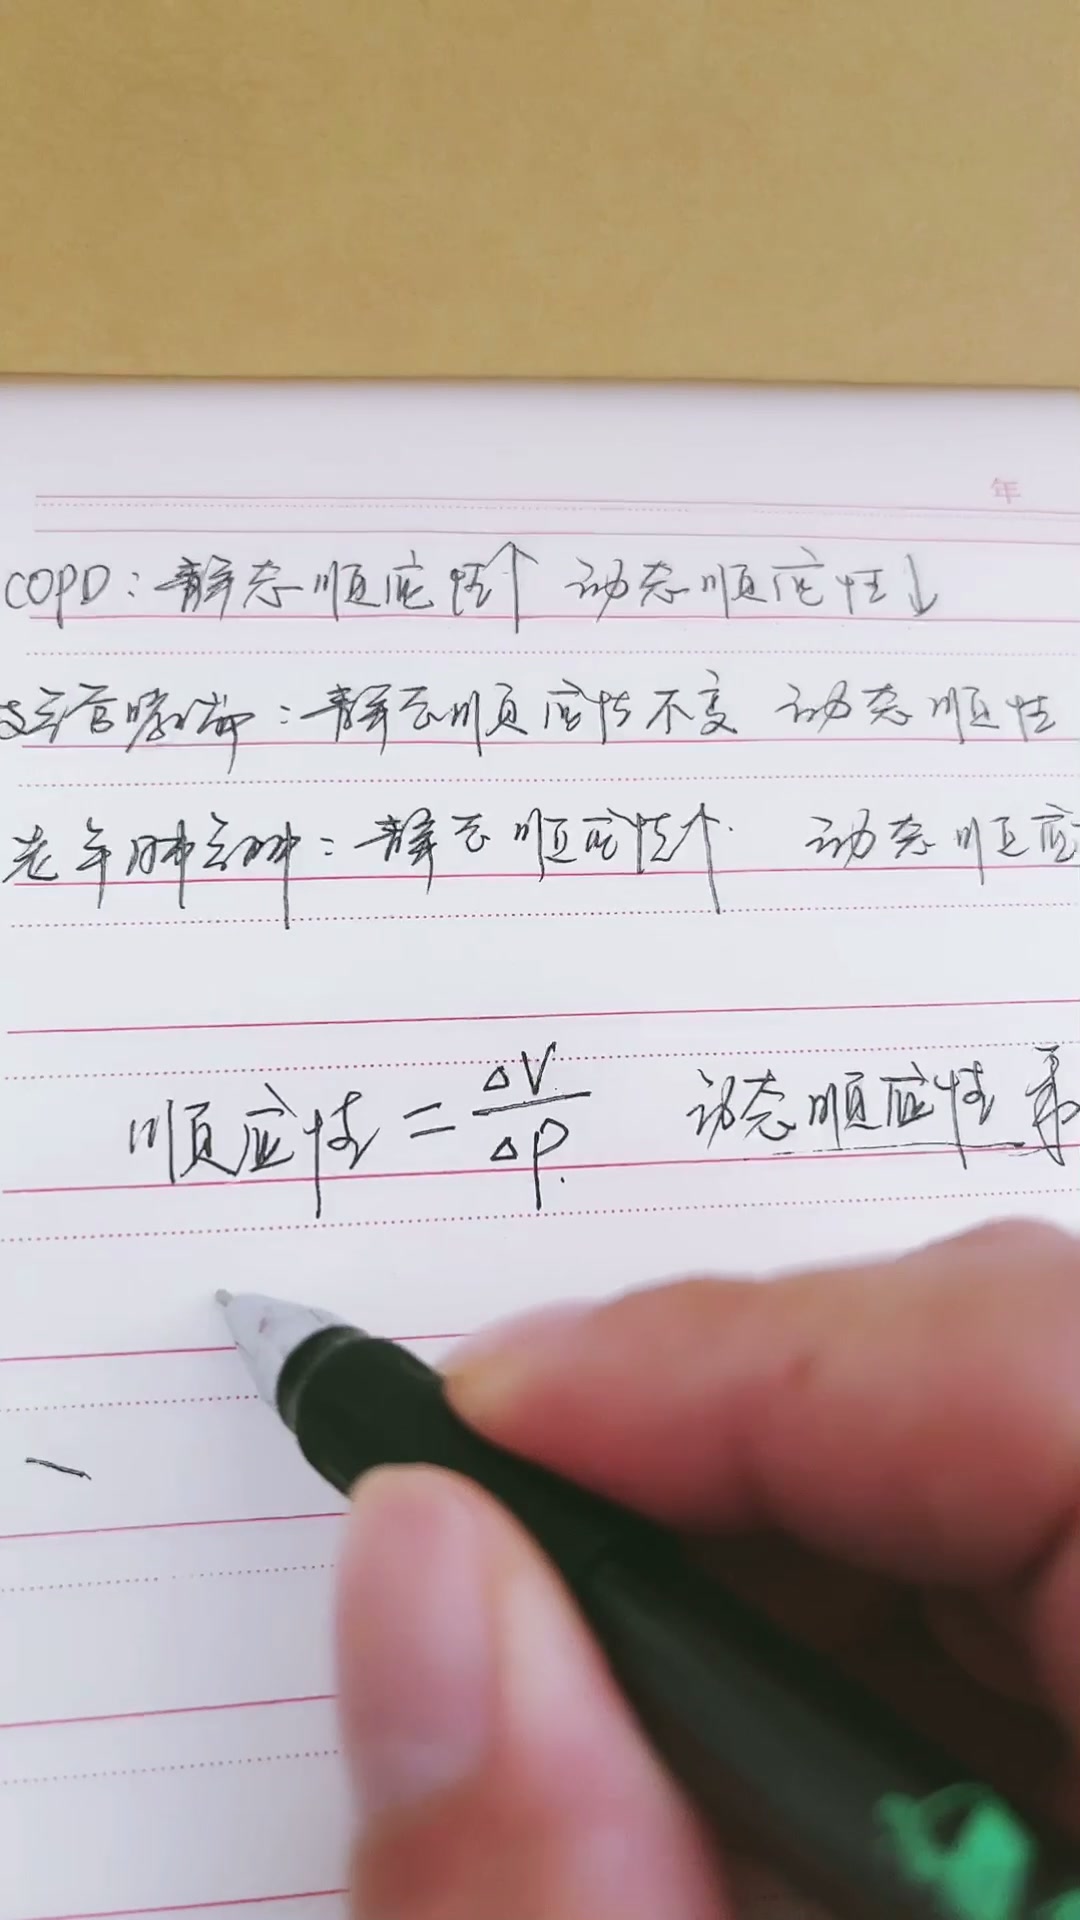 年
COPD：静态顺应性↑ 动态顺应性↓
支气管哮喘：静态顺应性不变 动态顺性
老年肺气肿：静态顺应性↑ 动态顺应
顺应性 = ΔV/ΔP 动态顺应性